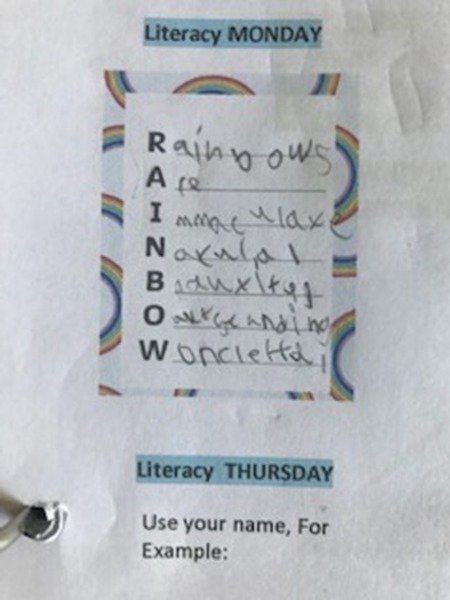 Literacy MONDAY
Rainbows
Are
Immaculaxe
Naxulal
B
O
Woncletta
Literacy THURSDAY
Use your name, For
Example: